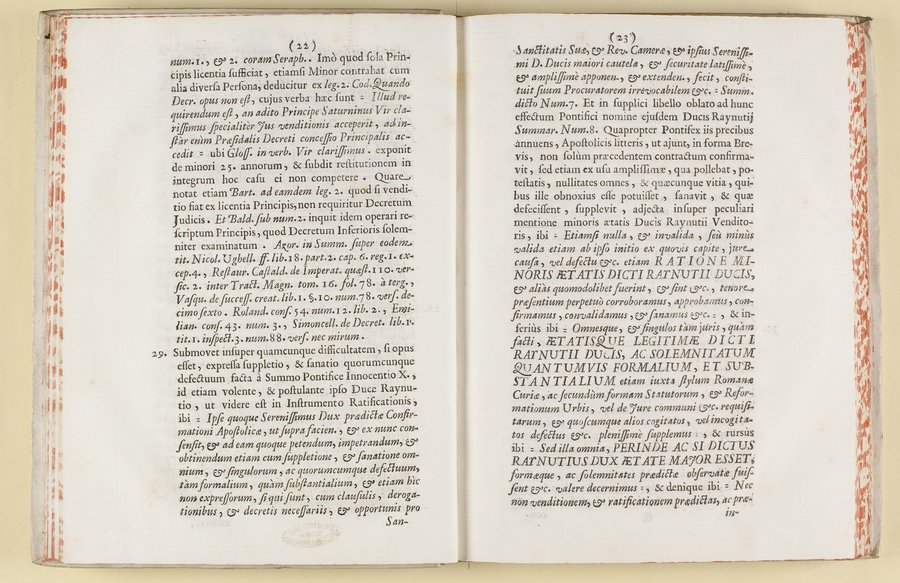 (22)
num.1., & 2. coram Seraph.. Imò quod sola Prin-
cipis licentia sufficiat, etiamsi Minor contrahat cum
alia diversa Persona, deducitur ex leg. 2. Cod. Quando
Decr. opus non est, cujus verba hæc sunt = Illud re-
quirendum est, an adito Principe Saturninus Vir cla-
rissimus specialiter Jus venditionis acceperit, ad in-
star enim Præsidalis Decreti concessio Principalis ac-
cedit = ubi Gloss. in verb. Vir clarissimus. exponit
de minori 25. annorum, & subdit restitutionem in
integrum hoc casu ei non competere. Quare
notat etiam Bart. ad eamdem leg. 2. quod si vendi-
tio fiat ex licentia Principis, non requiritur Decretum
Judicis. Et Bald. sub num. 2. inquit idem operari re-
scriptum Principis, quod Decretum Inferioris solem-
niter examinatum. Azor. in Summ. super eodem
tit. Nicol. Ughell. ff. lib. 18. part. 2. cap. 6. reg. 1. ex-
cep. 4., Restaur. Castald. de Imperat. quæst. 110. ver-
sic. 2. inter Tract. Magn. tom. 16. fol. 78. à terg.,
Vasqu. de success. creat. lib. 1. §. 10. num. 78. vers. de-
cimo sexto. Roland. cons. 54. num. 12. lib. 2., Emi-
lian. cons. 43. num. 3., Simoncell. de Decret. lib. 1.
tit. 1. inspect. 3. num. 88. vers. nec mirum.
29. Submovet insuper quamcunque difficultatem, si opus
esset, expressa suppletio, & sanatio quorumcunque
defectuum facta à Summo Pontifice Innocentio X.,
id etiam volente, & postulante ipso Duce Raynu-
tio, ut videre est in Instrumento Ratificationis,
ibi = Ipse quoque Serenissimus Dux prædictæ Confir-
mationi Apostolicæ, ut supra facien., & ex nunc con-
sensit, & ad eam quoque petendum, impetrandum, &
obtinendum etiam cum suppletione, & sanatione om-
nium, & singulorum, ac quorumcumque defectuum,
tàm formalium, quàm substantialium, & etiam hic
non expressorum, si qui sunt, cum clausulis, deroga-
tionibus, & decretis necessariis, & opportunis pro
San-
(23)
Sanctitatis Suæ, & Rev. Cameræ, & ipsius Serenissi-
mi D. Ducis maiori cautela, & securitate latissimè,
& amplissimè apponen., & extenden., fecit, consti-
tuit suum Procuratorem irrevocabilem &c. = Summ.
dicto Num. 7. Et in supplici libello oblato ad hunc
effectum Pontifici nomine ejusdem Ducis Raynutij
Summar. Num. 8. Quapropter Pontifex iis precibus
annuens, Apostolicis litteris, ut ajunt, in forma Bre-
vis, non solùm præcedentem contractum confirma-
vit, sed etiam ex usu amplissimæ, qua pollebat, po-
testatis, nullitates omnes, & quæcunque vitia, qui-
bus ille obnoxius esse potuisset, sanavit, & quæ
defecissent, supplevit, adjecta insuper peculiari
mentione minoris ætatis Ducis Raynutii Vendito-
ris, ibi = Etiamsi nulla, & invalida, seù minùs
valida etiam ab ipso initio ex quovis capite, jure
causa, vel defectu &c. etiam RATIONE MI-
NORIS ÆTATIS DICTI RAYNUTII DUCIS,
& aliàs quomodolibet fuerint, & sint &c., tenore
præsentium perpetuò corroboramus, approbamus, con-
firmamus, convalidamus, & sanamus &c. =, & in-
feriùs ibi = Omnesque, & singulos tàm juris, quàm
facti, ÆTATISQUE LEGITIMÆ DICTI
RAYNUTII DUCIS, AC SOLEMNITATUM
QUANTUMVIS FORMALIUM, ET SUB-
STANTIALIUM etiam iuxta stylum Romanæ
Curiæ, ac secundùm formam Statutorum, & Refor-
mationum Urbis, vel de Jure communi &c. requisi-
tarum, & quoscumque alios cogitatos, vel incogita-
tos defectus &c. plenissimè supplemus =, & rursùs
ibi = Sed illa omnia, PERINDE AC SI DICTUS
RAYNUTIUS DUX ÆTATE MAJOR ESSET,
formæque, ac solemnitates prædictæ observatæ fuis-
sent &c. valere decernimus =, & denique ibi = Nec
non venditionem, & ratificationem prædictas, ac præ-
in-